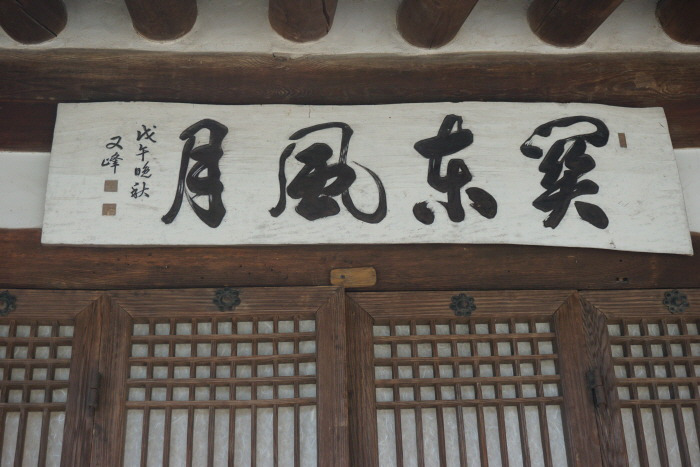 関東風月
戊午晩秋
又峰